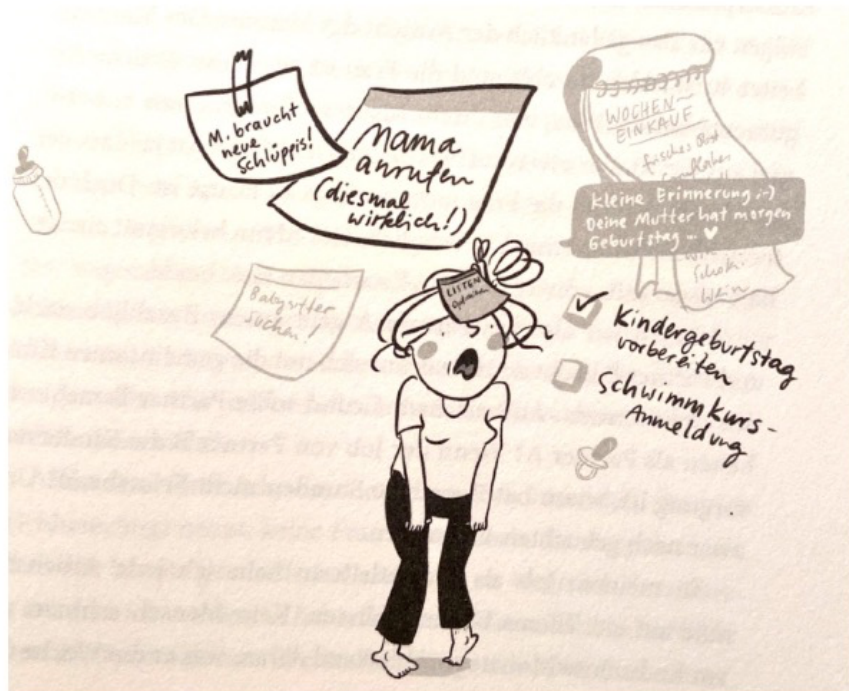 M. braucht
neue
Schlüppis!
Mama
anrufen
(diesmal
wirklich!)
WOCHEN-
EINKAUF
frisches Obst
Cornflakes
Kleine Erinnerung ;-)
Deine Mutter hat morgen
Geburtstag - ♥
Schoki
Wein
Babysitter
suchen!
LISTEN
Kindergeburtstag
vorbereiten
Schwimmkurs-
Anmeldung